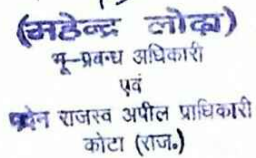 (महेन्द्र लोढा)
भू-प्रबन्ध अधिकारी
एवं
पदेन राजस्व अपील प्राधिकारी
कोटा (राज.)